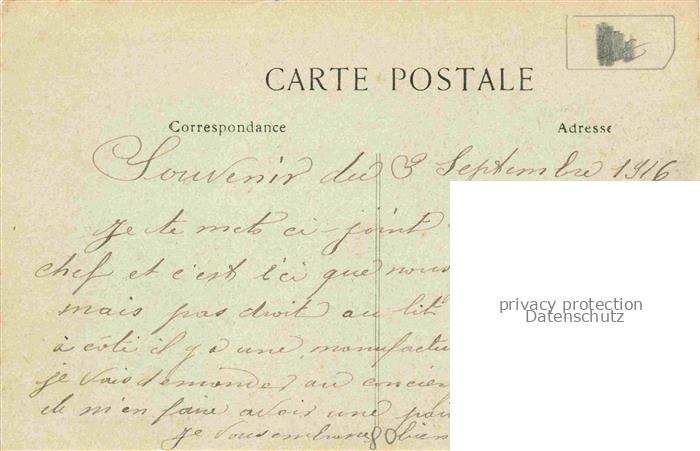 CARTE POSTALE
Correspondance Adresse
Souvenir du 3 Septembre 1916
je te mets ci-joint
chef et c'est ici que nous
mais pas droit au lit
à côté il y a une manufactu
je vais demander au concier
de m'en faire avoir une
je vous embrasse bien
privacy protection
Datenschutz